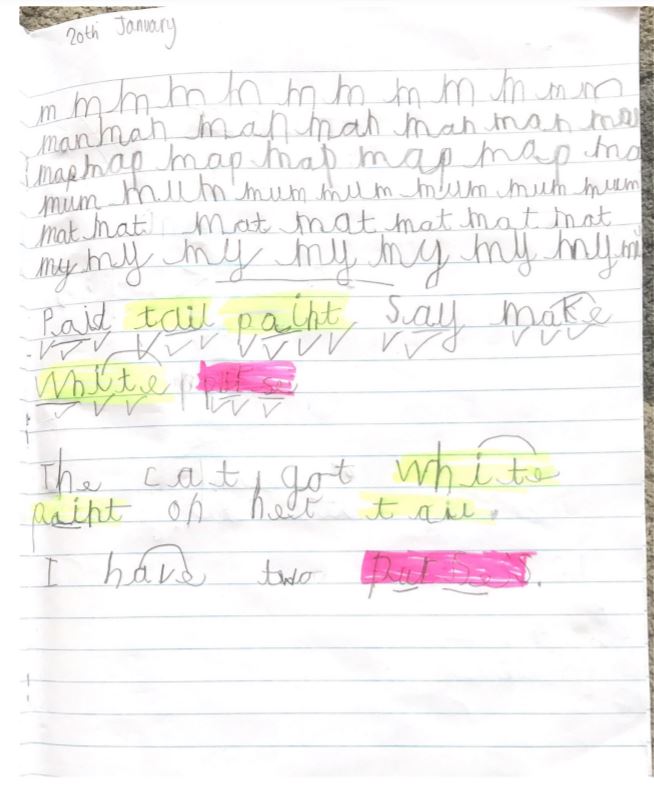 20th January
m m m m m m m m m m m m
man man man man man man ma
map map map map map map ma
mum mum mum mum mum mum mum
mat mat mat mat mat mat mat
my my my my my my my m
Paid tail paint say make
white purse
The cat got white
paint on her tail.
I have two purse's.